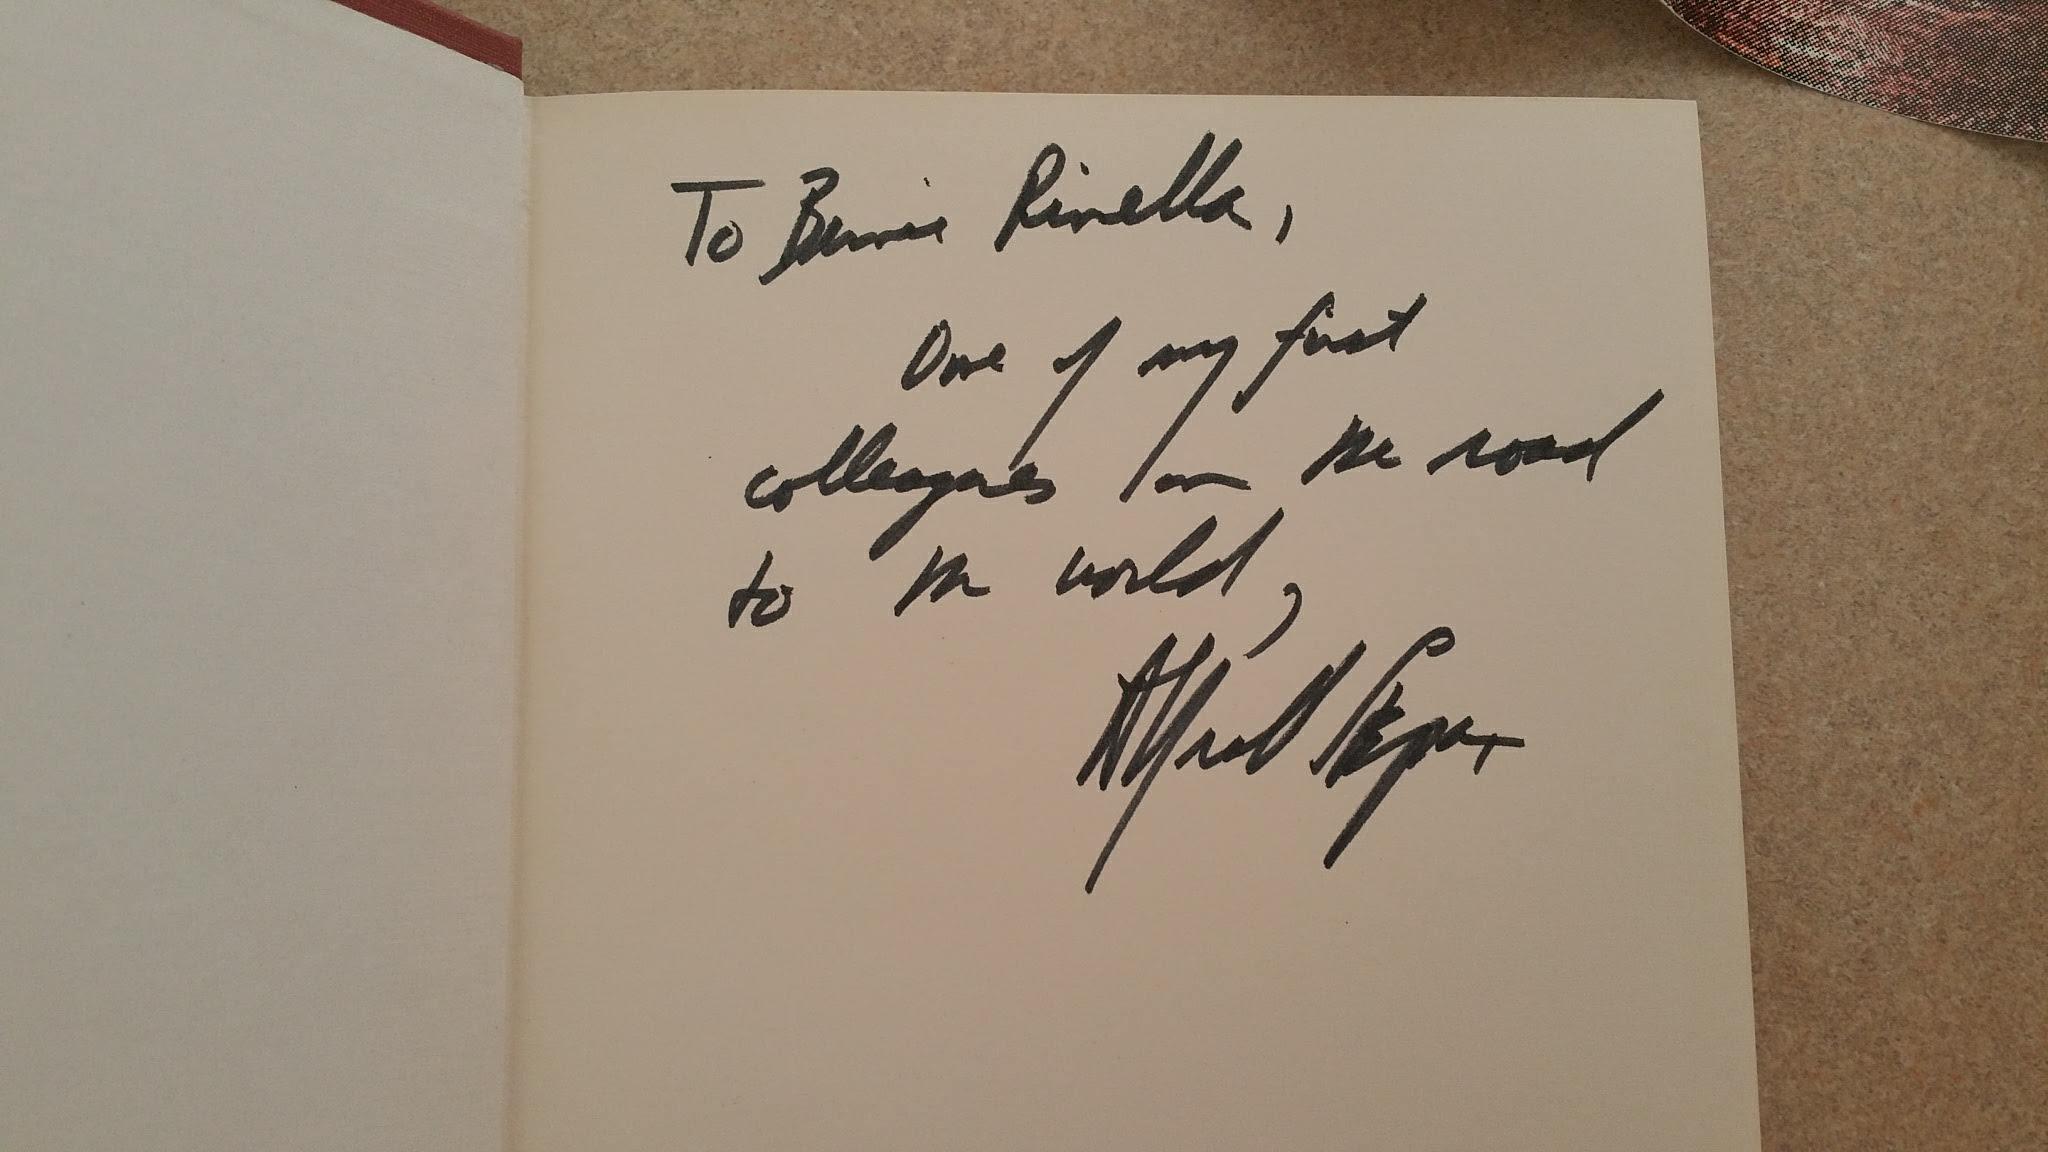 To Bernie Rinella,
One of my first
colleagues on the road
to the world,
Alfred Stepan